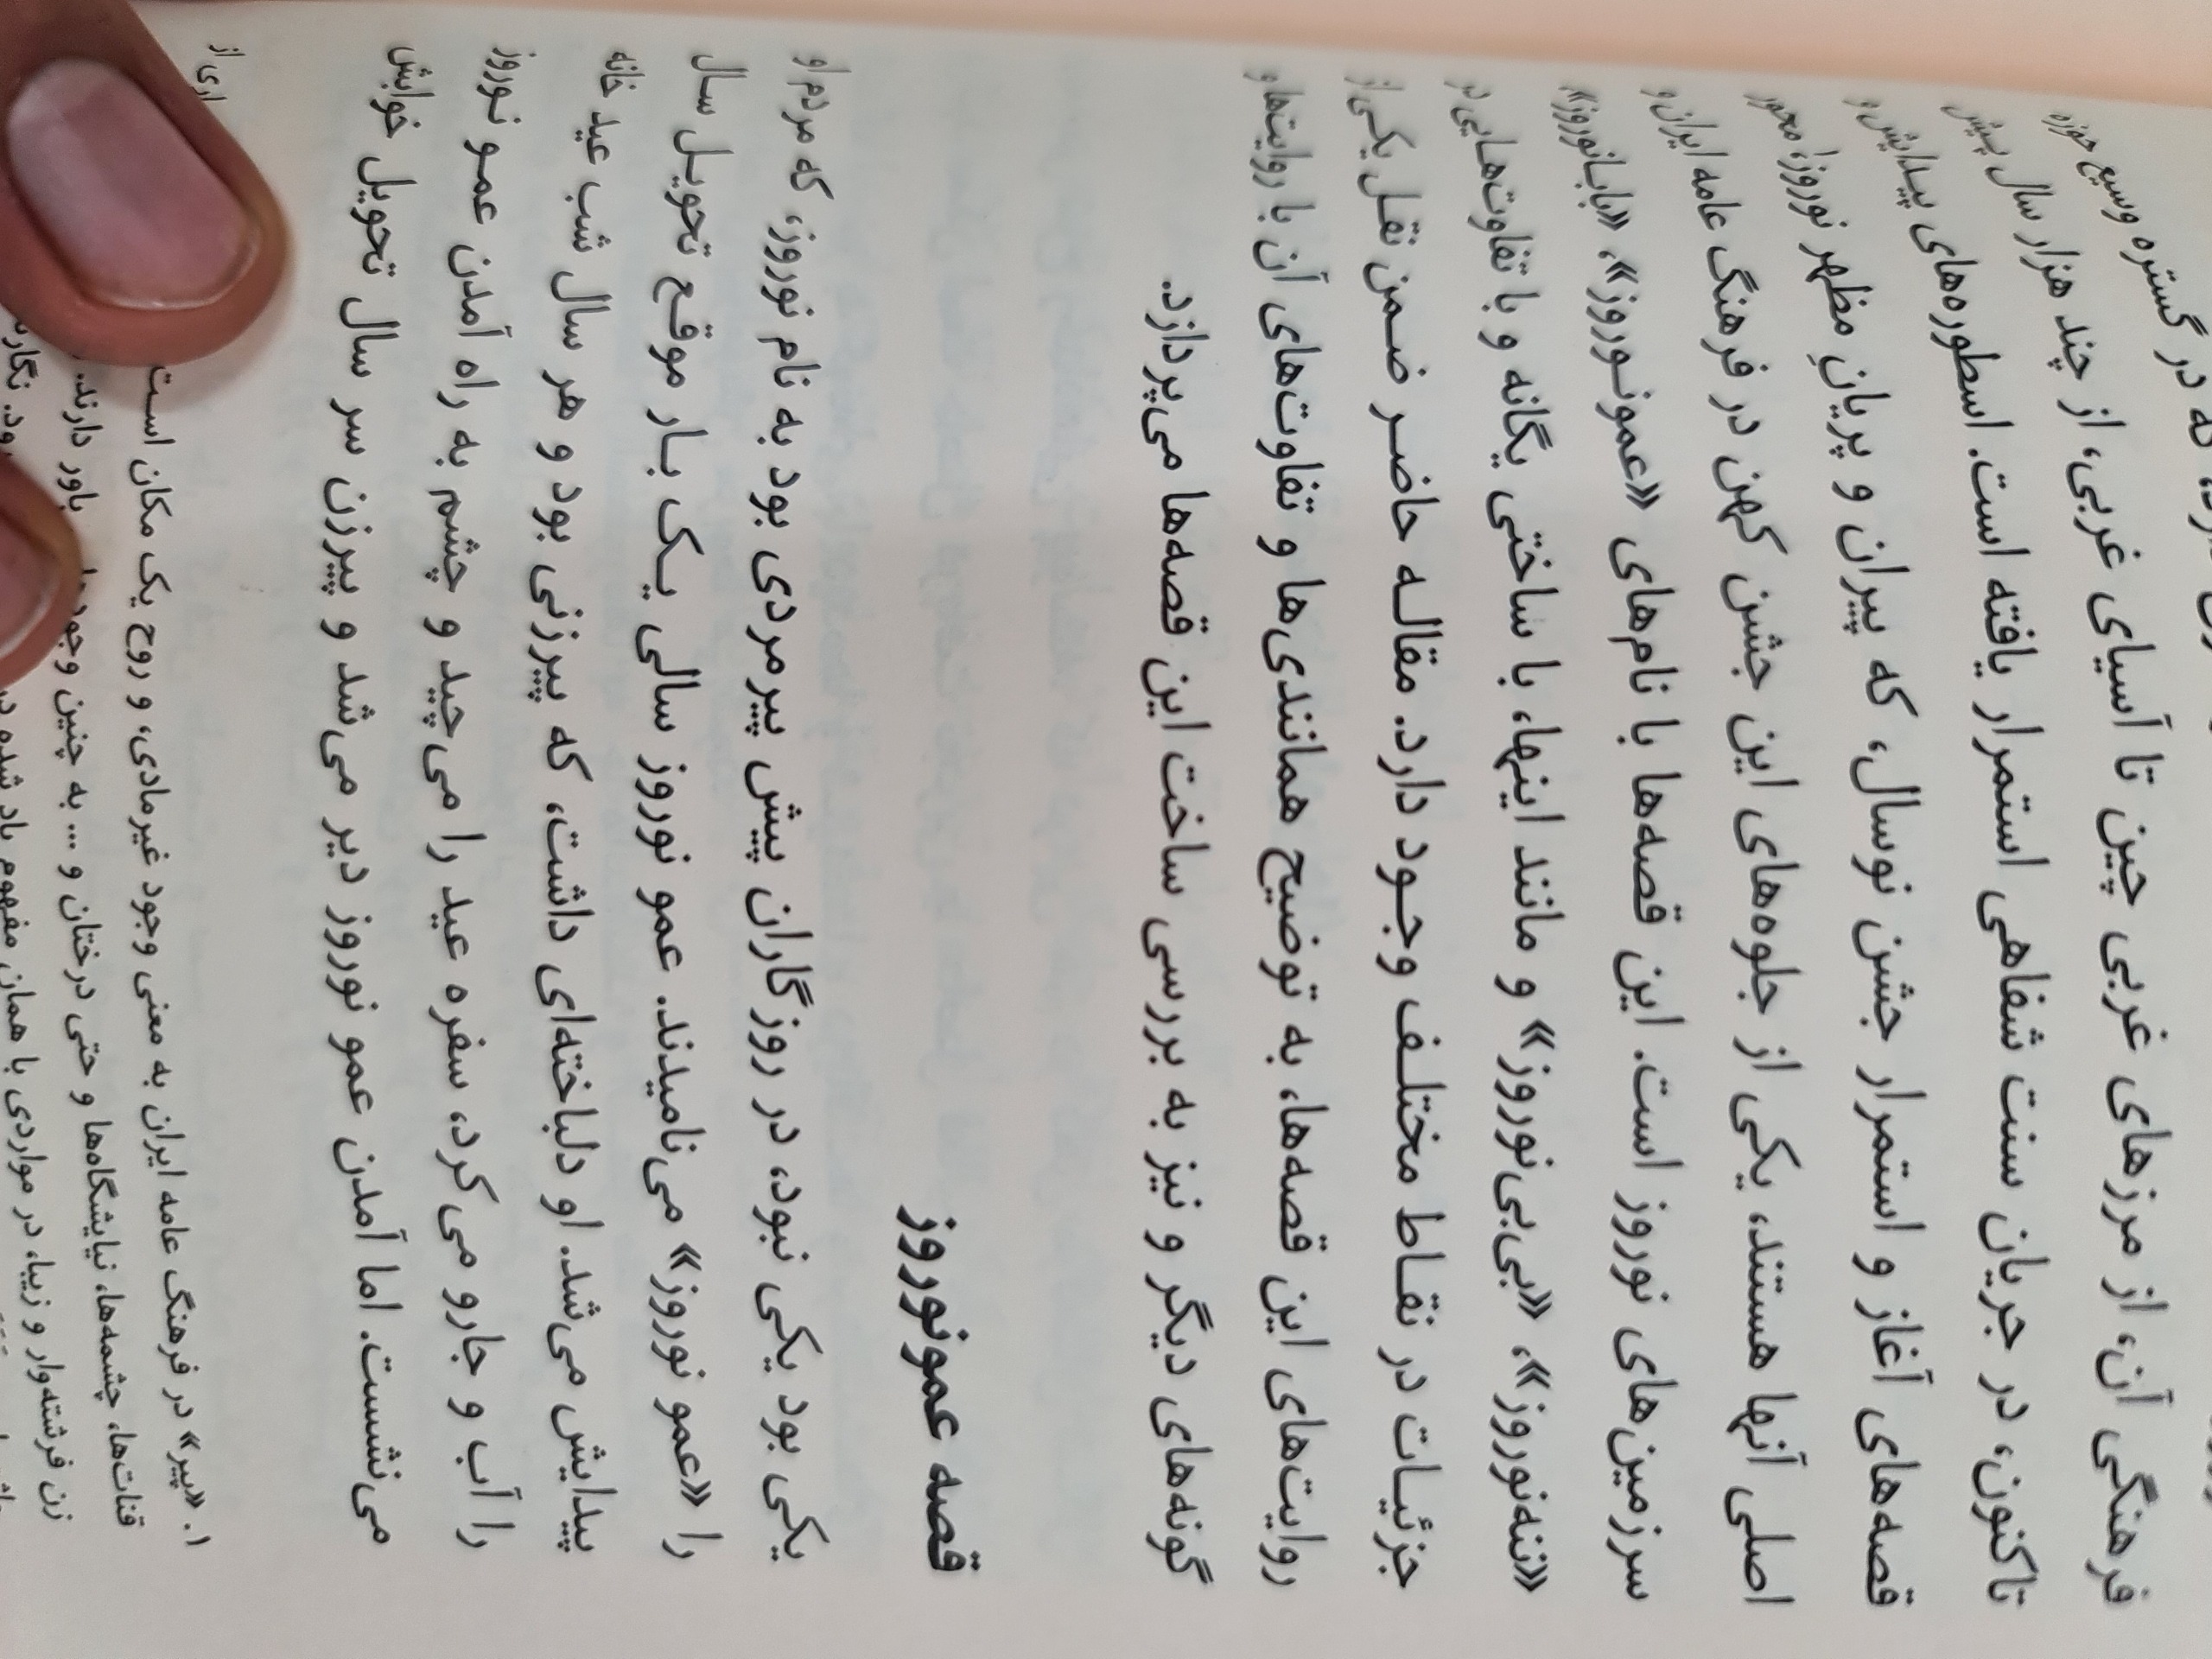 که در گستره وسیع حوزه
فرهنگی آن، از مرزهای غربی چین تا آسیای غربی، از چند هزار سال پیش
تاکنون، در جریان سنت شفاهی استمرار یافته است. اسطوره‌های پیدایش و
قصه‌های آغاز و استمرار جشن نوسال، که پیران و پریانِ مظهر نوروز، محور
اصلی آنها هستند، یکی از جلوه‌های این جشن کهن در فرهنگ عامه ایران و
سرزمین‌های نوروز است. این قصه‌ها با نام‌های «عمونوروز»، «بابانوروز»،
«ننه‌نوروز»، «بی‌بی‌نوروز» و مانند اینها، با ساختی یگانه و با تفاوت‌هایی در
جزئیات در نقاط مختلف وجود دارد. مقاله حاضر ضمن نقل یکی از
روایت‌های این قصه‌ها، به توضیح همانندی‌ها و تفاوت‌های آن با روایت‌ها و
گونه‌های دیگر و نیز به بررسی ساخت این قصه‌ها می‌پردازد.
قصه عمونوروز
یکی بود یکی نبود، در روزگاران پیش پیرمردی بود به نام نوروز، که مردم او
را «عمو نوروز» می‌نامیدند. عمو نوروز سالی یک بار موقع تحویل سال
پیدایش می‌شد. او دلباخته‌ای داشت، که پیرزنی بود و هر سال شب عید خانه
را آب و جارو می‌کرد، سفره عید را می‌چید و چشم به راه آمدن عمو نوروز
می‌نشست. اما آمدن عمو نوروز دیر می‌شد و پیرزن سر سال تحویل خوابش
۱. «پیر» در فرهنگ عامه ایران به معنی وجود غیرمادی، و روح یک مکان است از
قنات‌ها، چشمه‌ها، نیایشگاه‌ها و حتی درختان و ... به چنین وجود باور دارند.
زن فرشته‌وار و زیبا، در مواردی با همان مفهوم یاد شده